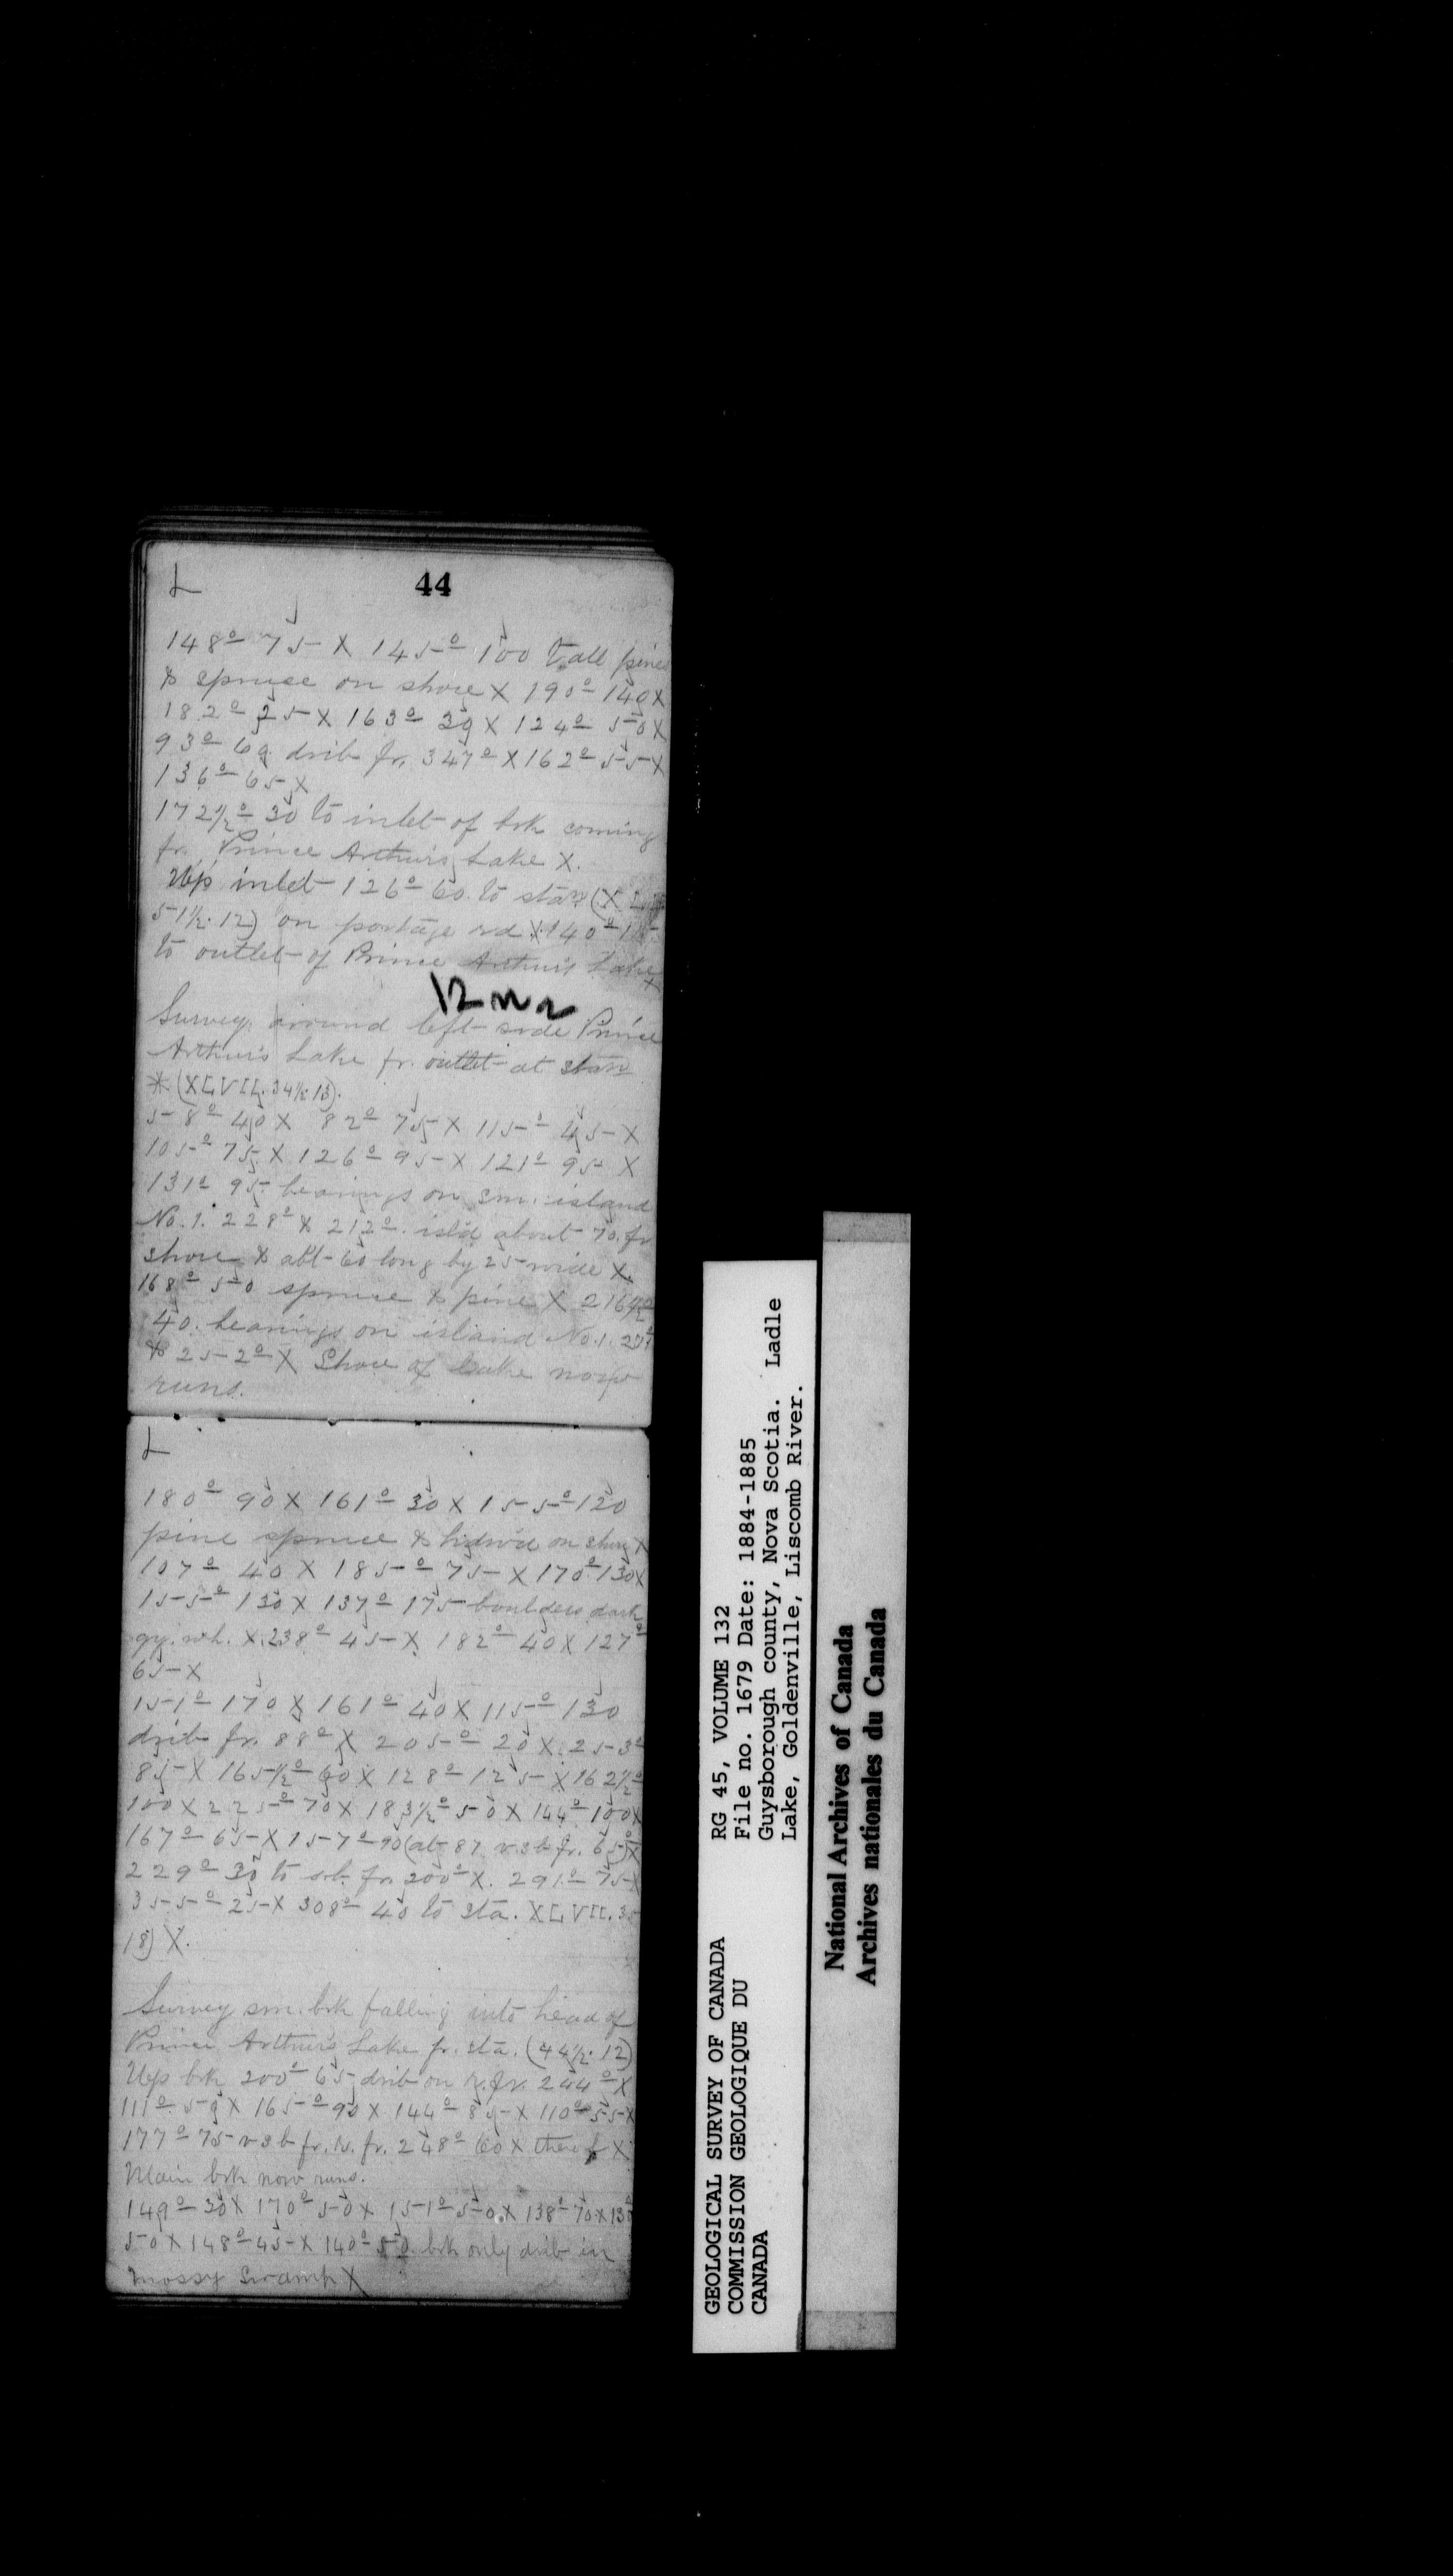 L
44
148° 75 X 145° 100 tall pine
& spruce on shore X 190° 140 X
182° 25 X 163° 30 X 124° 50 X
93° 60 drib fr. 347° X 162° 55 X
136° 65 X
172½° 30 to inlet of brk coming
fr. Prince Arthur's Lake X.
Up inlet 126° 60 to stan (X
51½.12) on portage rd X 140°
to outlet of Prince Arthur's Lake
X
Survey around left side Prince
Arthur's Lake fr. outlet at stan
* (XLVII. 34½.13).
58° 40 X 82° 75 X 115° 45 X
105° 75 X 126° 95 X 121° 95 X
131° 95 bearings on sm. island
No. 1. 228° & 212°. isl'd about 70 fr
shore & abt 60 long by 25 wide X.
168° 50 spruce & pine X 216½°
40. bearings on island No. 1.
& 252° X Shore of Lake now
runs.
L
180° 90 X 161° 30 X 155° 120
pine spruce & hdwd on shore X
107° 40 X 185° 75 X 170° 130 X
155° 130 X 137° 175 boulders dark
gy. wh. X 238° 45 X 182° 40 X 127°
65 X
151° 170 X 161° 40 X 115° 130
drib fr. 88° X 205° 20 X 253°
85 X 165½° 60 X 128° 125 X 162½°
100 X 225° 70 X 183½° 50 X 144° 100 X
167° 65 X 157° 90 (at 87 v s b fr. 65°) X
229° 30 to sb. fr. 200° X. 291° 75 X
355° 25 X 308° 40 to sta. XLVII. 35
18) X.
Survey sm. brk falling into head of
Prince Arthur's Lake fr. sta. (44½.12)
Up brk 200° 65 drib on r. fr. 244° X
111° 50 X 165° 90 X 144° 85 X 110° 55 X
177° 75 v s b fr. r. fr. 248° 60 X X
Main brk now runs.
149° 30 X 170° 50 X 151° 50 X 138° 70 X 130°
50 X 148° 45 X 140° 50 brk only drib in
mossy swamp X
RG 45, VOLUME 132
File no. 1679 Date: 1884-1885
Guysborough county, Nova Scotia. Ladle
Lake, Goldenville, Liscomb River.
GEOLOGICAL SURVEY OF CANADA
COMMISSION GEOLOGIQUE DU
CANADA
National Archives of Canada
Archives nationales du Canada